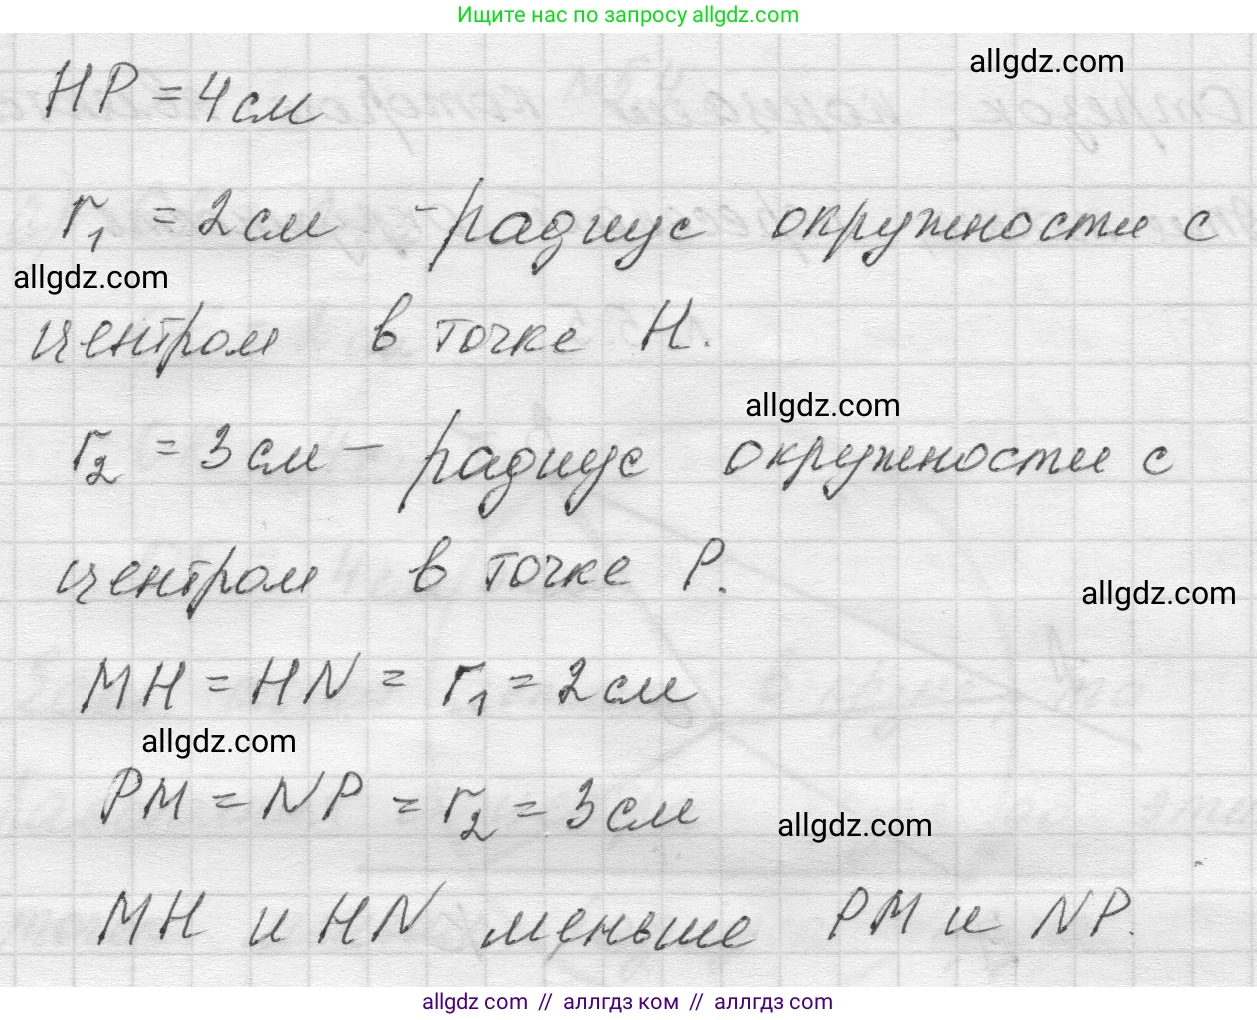 Ищите нас по запросу allgdz.com
allgdz.com
HP = 4 см
r₁ = 2 см - радиус окружности с
allgdz.com
центром в точке H.
allgdz.com
r₂ = 3 см - радиус окружности с
центром в точке P.
allgdz.com
MH = HN = r₁ = 2 см
allgdz.com
PM = NP = r₂ = 3 см
allgdz.com
MH и HN меньше PM и NP.
allgdz.com // аллгдз ком // аллгдз com